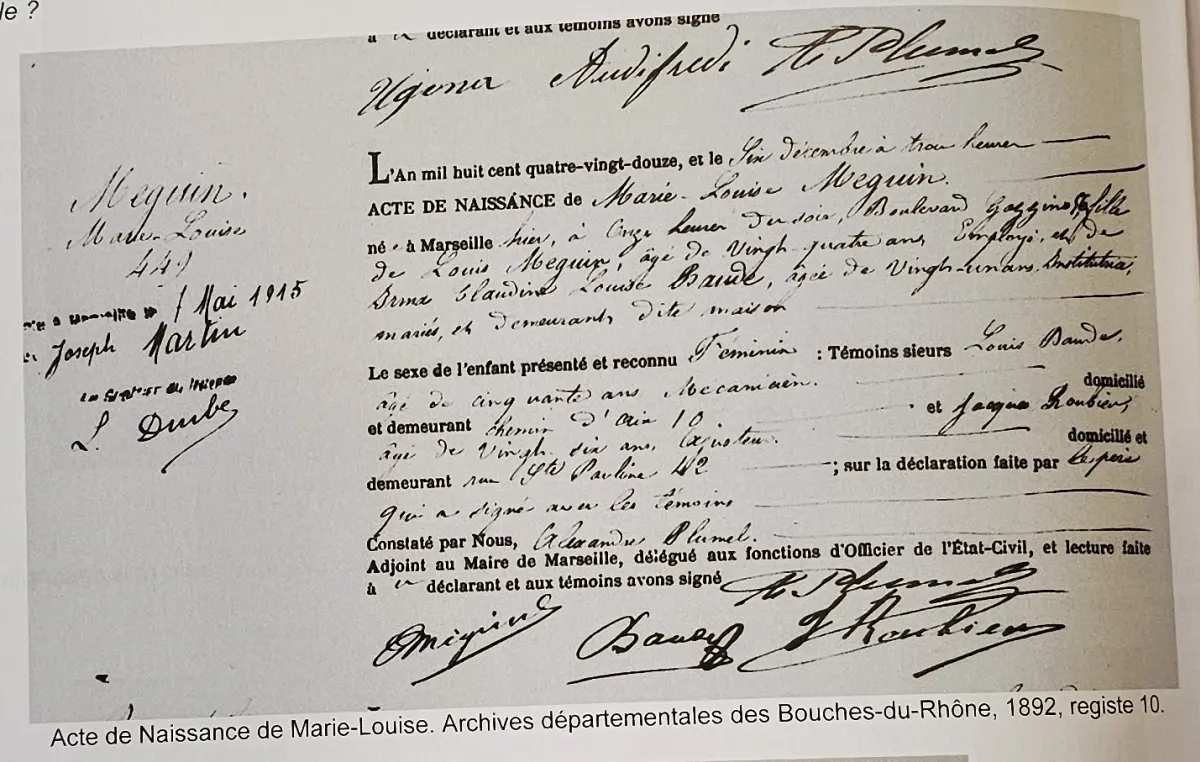 le ?
à déclarant et aux témoins avons signé
Audifredi A. Plumel
L'An mil huit cent quatre-vingt-douze, et le Six décembre à trois heures
ACTE DE NAISSANCE de Marie-Louise Meguin.
né e à Marseille hier, à onze heures du soir, Boulevard fille
de Louis Meguin, âgé de vingt-quatre ans, Employé, et de
Claudine Louise Baude, âgée de vingt-un ans, Institutrice,
mariés, et demeurant dite maison
Le sexe de l'enfant présenté et reconnu Féminin : Témoins sieurs Louis Baude,
âgé de cinquante ans Mécanicien. domicilié
et demeurant chemin d'aix 10 et Jacques Roubieu,
âgé de vingt six ans, Ajusteur. domicilié et
demeurant rue Ste Pauline 42 ; sur la déclaration faite par le père
qui a signé avec les témoins
Constaté par Nous, Alexandre Plumel.
Adjoint au Maire de Marseille, délégué aux fonctions d'Officier de l'État-Civil, et lecture faite
à déclarant et aux témoins avons signé A. Plumel
Meguin Baude J Roubieu
Meguin.
Marie-Louise
449
1 Mai 1915
Joseph Martin
Le Greffier
Acte de Naissance de Marie-Louise. Archives départementales des Bouches-du-Rhône, 1892, registe 10.